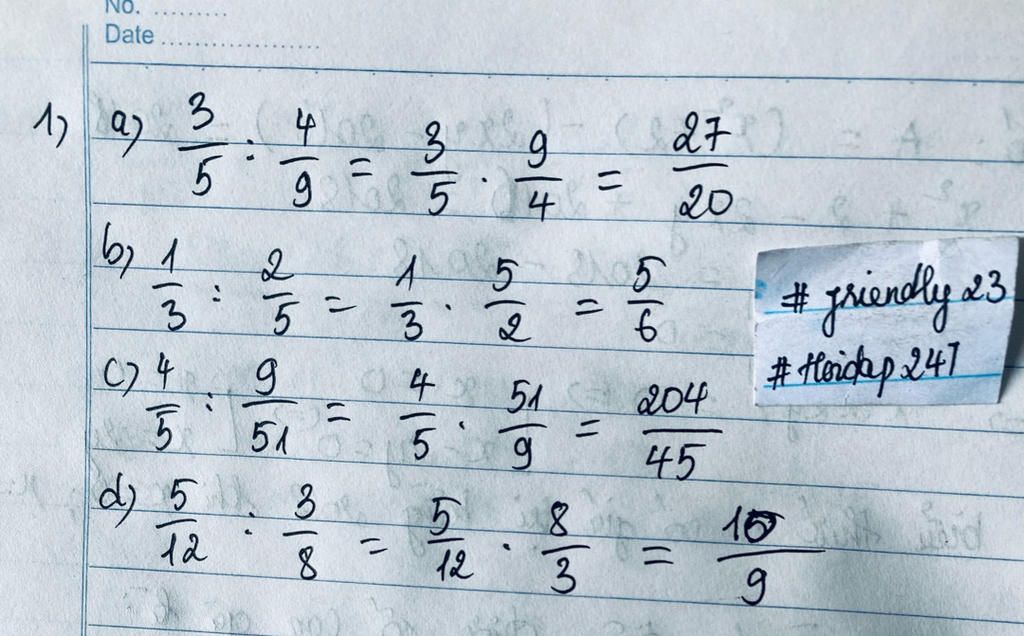 No. .........
Date ....................
1) a) 3/5 : 4/9 = 3/5 . 9/4 = 27/20
b) 1/3 : 2/5 = 1/3 . 5/2 = 5/6
c) 4/5 : 9/51 = 4/5 . 51/9 = 204/45
d) 5/12 : 3/8 = 5/12 . 8/3 = 10/9
# friendly 23
# Hoidap 247